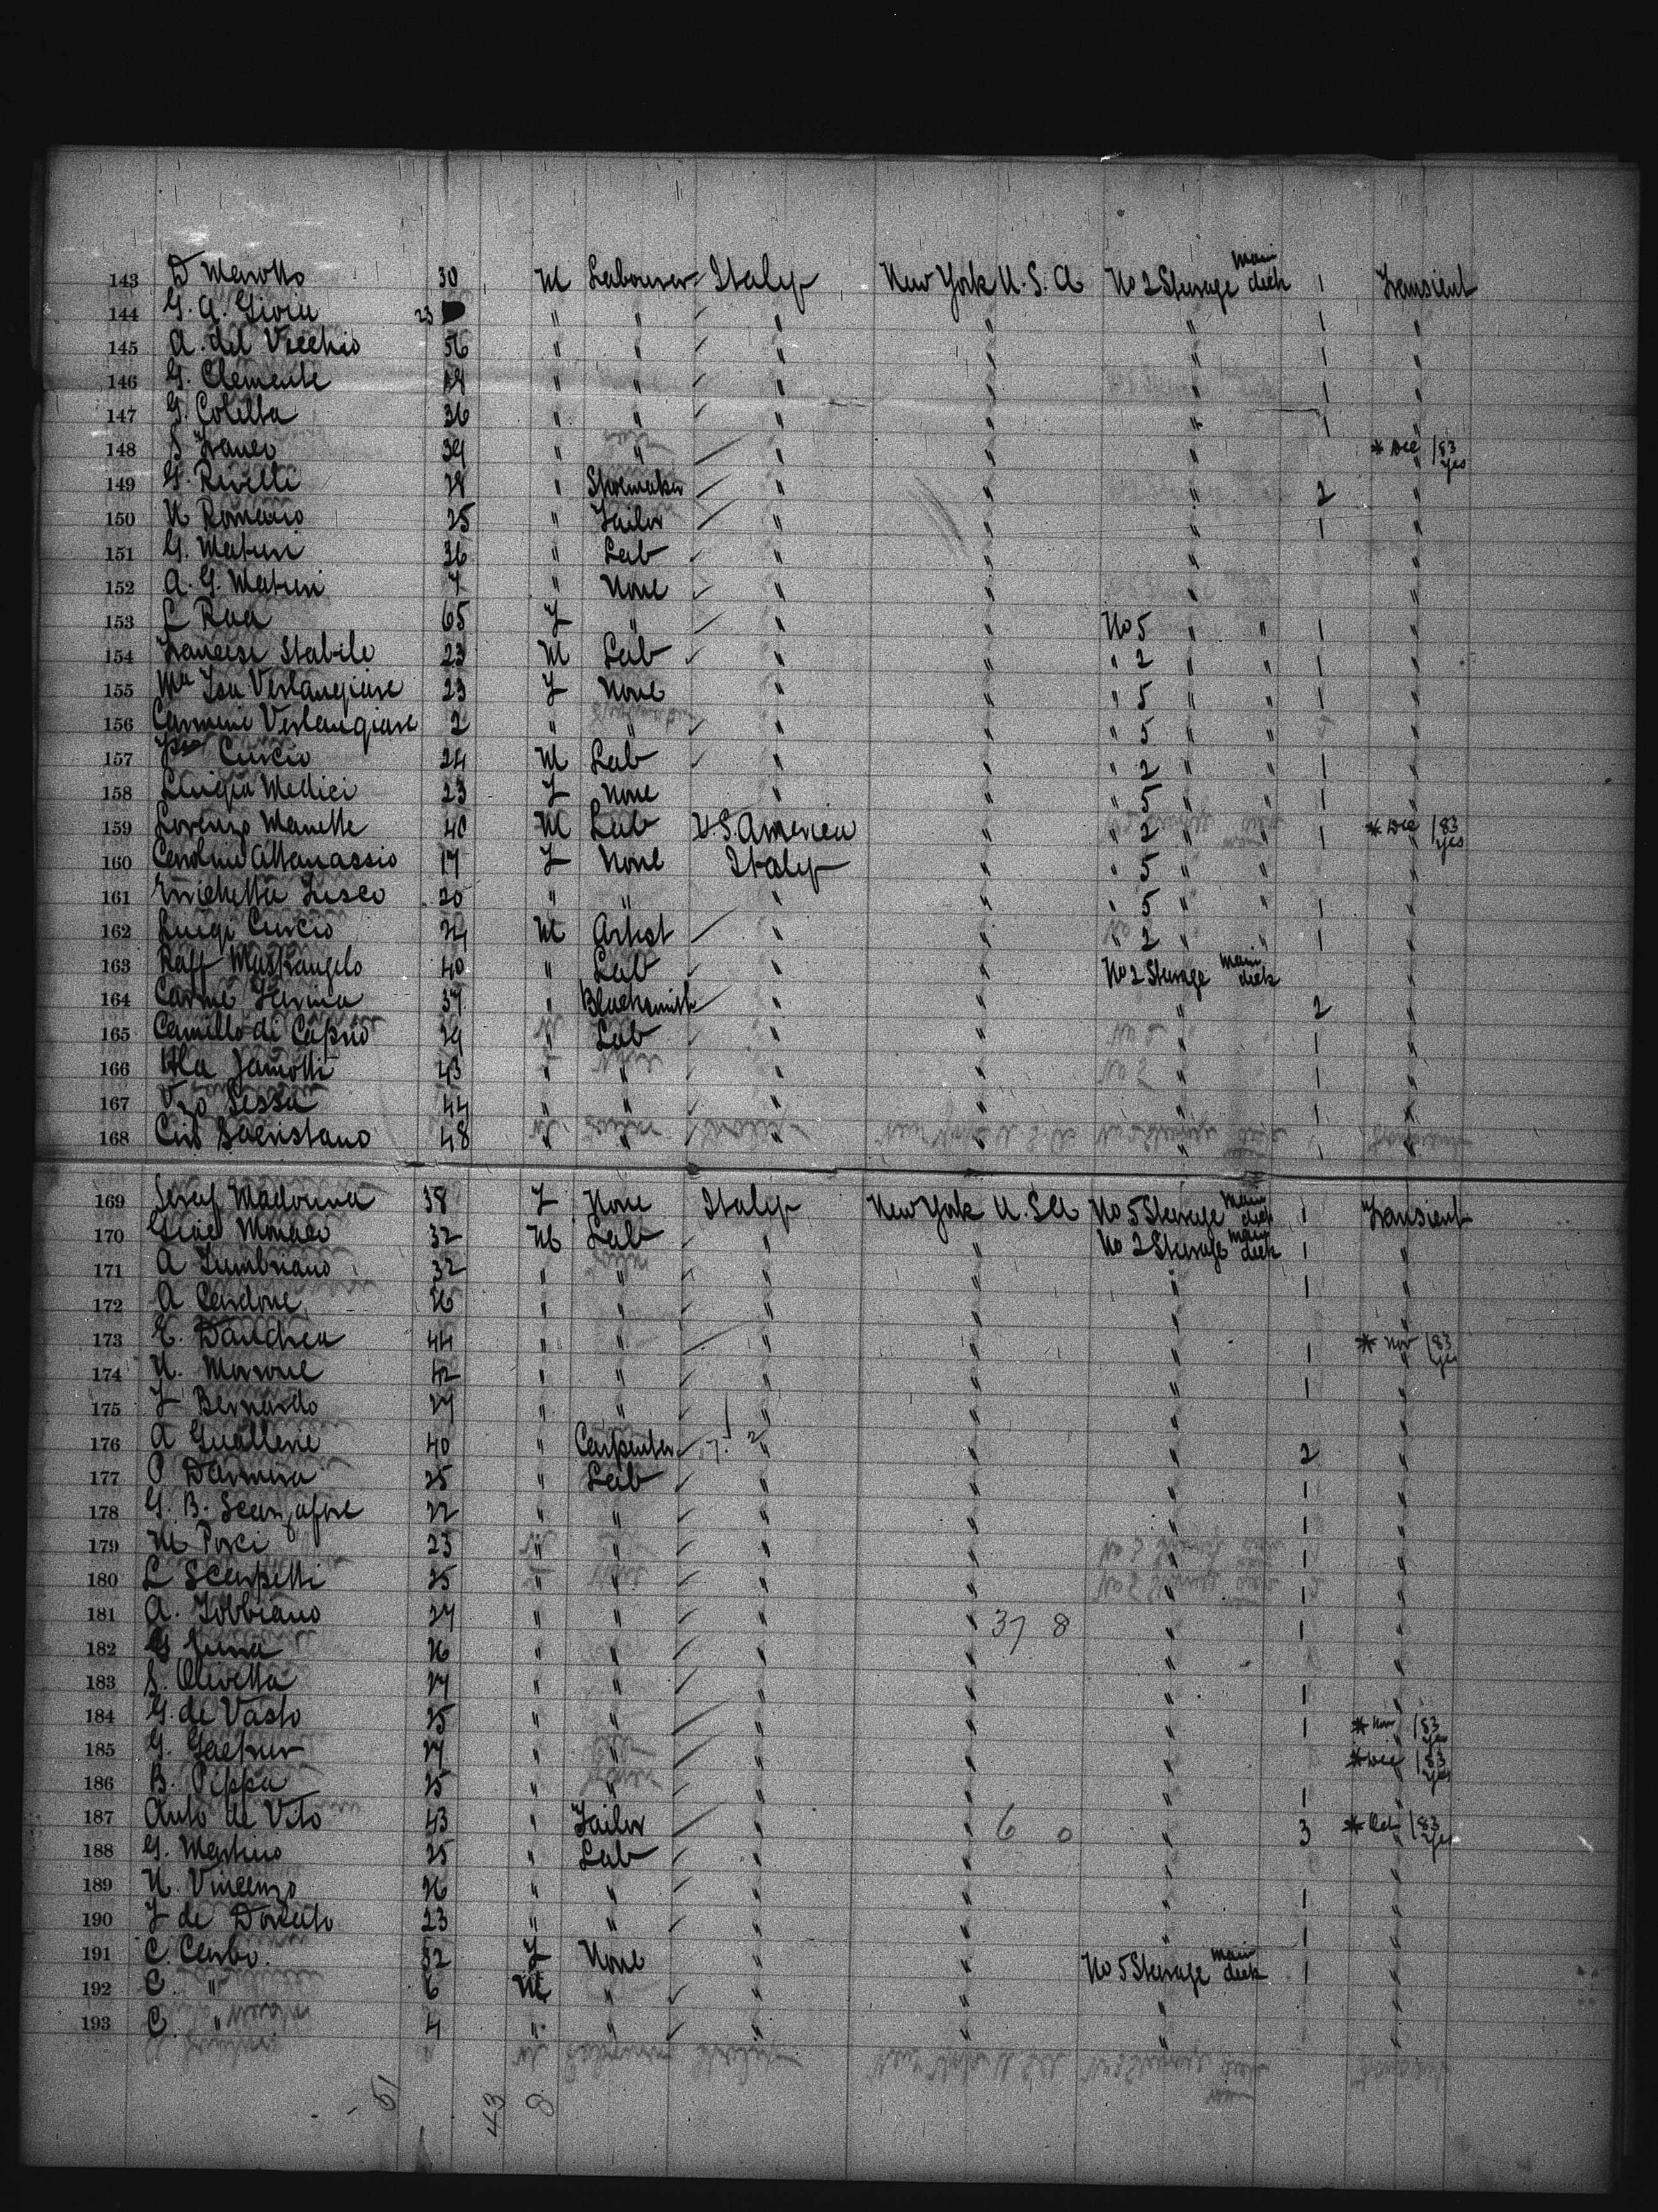 143 D Marotto 30 M Labourer Italy New York U.S.A No 2 Steerage Main deck 1 Transient
144 G. A. Gioia 23 " " " " " 1 "
145 A. del Vecchio 56 " " " " " 1 "
146 G. Clemente " " " " " 1 "
147 G. Coletta 36 " " " " " 1 "
148 S Franco 39 " " " " " * Dec /83 Yes "
149 G. Rivelli 28 " Shoemaker " " " 2 "
150 N Romano 25 " Tailor " " " 1 "
151 G. Maturi 36 " Lab " " " "
152 A. G. Maturi 7 " None " " " "
153 L Rua 65 F " " " No 5 " " 1 "
154 Francesi Stabile 23 M Lab " " " 2 " " 1 "
155 Ma Isa Verlangiere 23 F None " " " 5 " " 1 "
156 Carmine Verlangiere 2 " " " " " 5 " " "
157 Curcio 24 M Lab " " " 2 " " 1 "
158 Luigia Medici 23 F None " " " 5 " " 1 "
159 Lorenzo Manette 40 M Lab U.S. America " " 2 " " 1 * Dec /83 Yes "
160 Carolina Attanassio 17 F None Italy " " 5 " " "
161 Enrichetta Fusco 20 " " " " " 5 " " 1 "
162 Luigi Curcio 24 M Artist " " " 2 " " 1 "
163 Raff Mastrangelo 40 " Lab " " No 2 Steerage Main deck "
164 Carme Farina 37 " Blacksmith " " " 2 "
165 Camillo di Caprio 29 " Lab " " " 1 "
166 Zamotti 43 " " " " " 1 "
167 Vzo Sessa 44 " " " " " 1 "
168 Ciro Sacristano 48 " " " " " 1 "
169 Seraf Madonna 38 F None Italy New York U.S.A No 5 Steerage Main deck 1 Transient
170 Giac Monaco 32 M Lab " " No 2 Steerage Main deck 1 "
171 A Lumbriano 32 " " " " " 1 "
172 A Cardone 26 " " " " " "
173 E. Dandrea 44 " " " " " 1 * Nov /83 Yes "
174 N. Marone 42 " " " " " 1 "
175 F Bernardo 27 " " " " " "
176 A Gualterie 40 " Carpenter " " " 2 "
177 P Darmina 25 " Lab " " " 1 "
178 G. B. Scanzafore 22 " " " " " 1 "
179 M Porci 23 " " " " " 1 "
180 L Scarpetti 25 " " " " " 1 "
181 A. Fobbiano 27 " " " " 37 8 " 1 "
182 G Luna 26 " " " " " "
183 S. Olivetta 27 " " " " " 1 "
184 G. de Vasto 25 " " " " " 1 * Nov /83 Yes "
185 G. 27 " " " " " * Dec /83 Yes "
186 B. Pippa 25 " " " " " 1 "
187 Anto de Vito 43 " Tailor " " 6 0 " 3 * Oct /83 Yes "
188 G. Martino 25 " Lab " " " "
189 N. Vincenzo 26 " " " " " 1 "
190 F de Donato 23 " " " " " 1 "
191 C. Cerbo. 32 F None " " No 5 Steerage Main deck 1 "
192 C. " 6 M " " " " "
193 C. " 4 " " " " " "
51 43 8